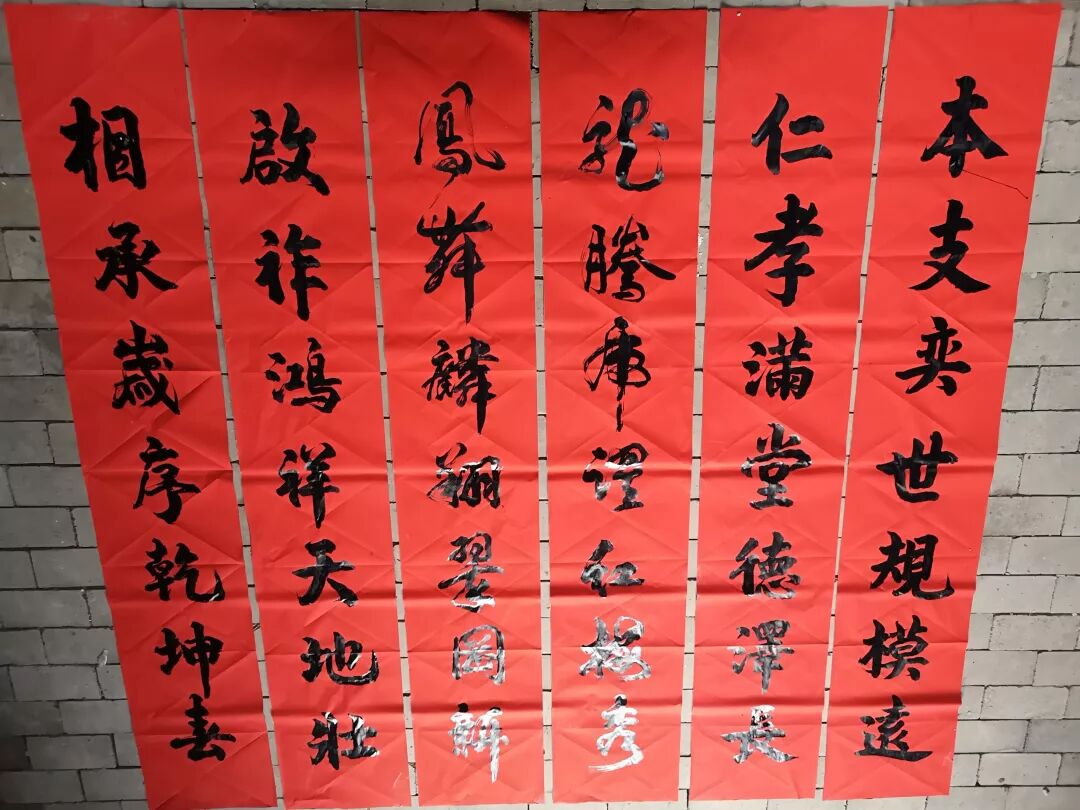 本支奕世規模遠
仁孝滿堂德澤長
龍騰虎躍紅楊秀
鳳舞麟翔翠岡
啟祚鴻祥天地壯
承歲序乾坤春